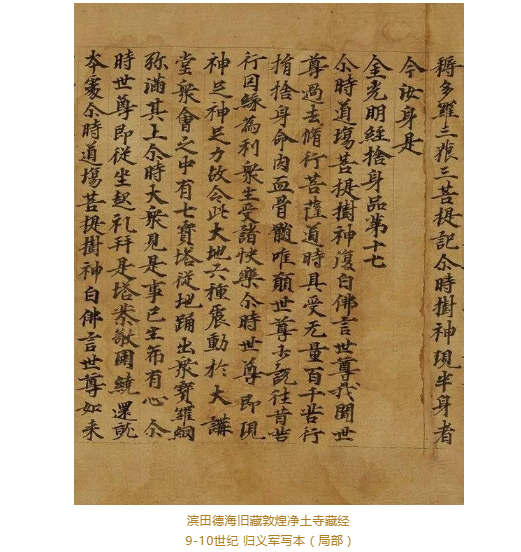 耨多羅三藐三菩提記尒時樹神現半身者
今汝身是
金光明經捨身品第十七
尒時道場菩提樹神復白佛言世尊我聞世
尊過去脩行菩薩道時具受无量百千苦行
捐捨身命肉血骨髓唯願世尊少說往昔苦
行因緣為利衆生受諸快樂尒時世尊即現
神足神足力故令此大地六種震動於大講
堂衆會之中有七寶塔從地踊出衆寶羅網
弥滿其上尒時大衆見是事已生希有心尒
時世尊即從坐起礼拜是塔恭敬圍繞還就
本座尒時道場菩提樹神白佛言世尊如来
滨田德海旧藏敦煌净土寺藏经
9-10世纪 归义军写本（局部）